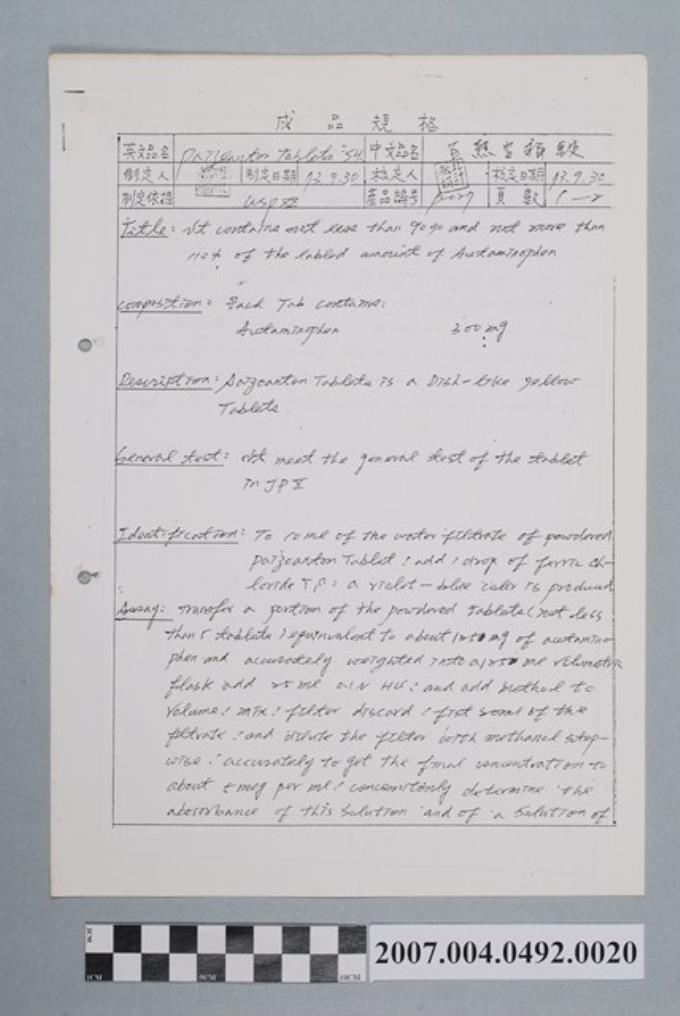 成品規格
英文品名 Paizcanton Tablets "S4" 中文品名
制定人 制定日期 73.9.30 核定人 核定日期 73.9.30
制定依據 USP XX 頁數 1-2
Title: It contains not less than 90% and not more than
110% of the labled amount of Acetaminophen
composition: Each Tab contains:
Acetaminophen 300 mg
Description: Paizcanton Tablets is a Dish-like yellow
Tablets
General test: It meet the general test of the tablet
in JP X
Identification: To 10 ml of the water filtrate of powdered
paizcanton Tablet: add 1 drop of ferric ch-
loride T.S: a violet-blue color is produced
Assay: Transfer a portion of the powdered tablets (not less
than 5 tablets) equinvalent to about mg of acetamino-
phen and accurately weighted into a 250 ml volumetric
flask add 25 ml 0.1N HCl: and add methol to
volume: mix: filter discard: fist 20 ml of the
filtrate: and dilute the filter with methanol step-
wise: accurately to get the final concentration to
about 5 mcg per ml: concomitonly determine the
abosorbance of this solution and of a solution of
8CM
1CM 5CM 10CM
2007.004.0492.0020